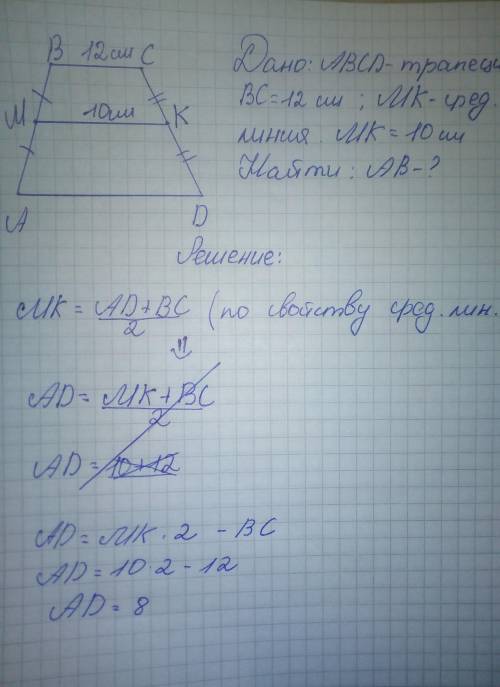 B 12см C
M 10см K
A D
Дано: ABCD - трапеци
BC = 12 см ; MK - сред.
линия. MK = 10 см
Найти: AB - ?
Решение:
MK = AD + BC / 2 (по свойству сред. лин.
⇓
AD = MK + BC / 2
AD = 10 + 12
AD = MK · 2 - BC
AD = 10 · 2 - 12
AD = 8